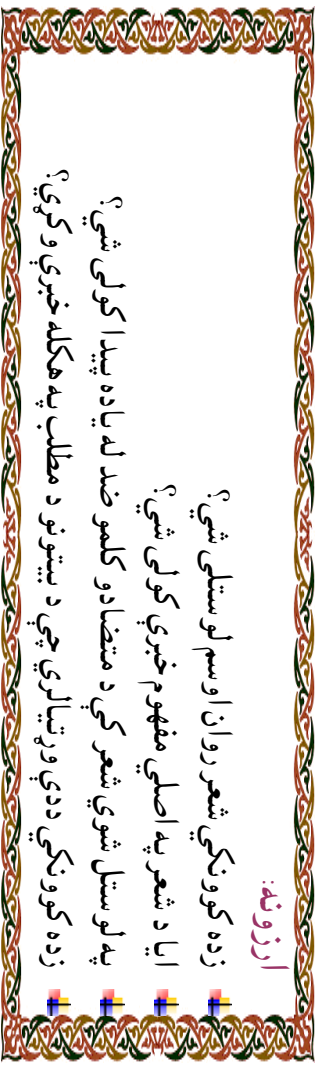 ارزونه:
زده کوونکي شعر روان اوسم لوستلی شي؟
ایا د شعر په اصلي مفهوم خبري کولی شي؟
په لوستل شوي شعر کي د متضادو کلمو ضد له یاده پیدا کولی شي؟
زده کوونکي ددې وړتیالري چې د بیتونو د مطلب په هکله خبرې وکړي؟